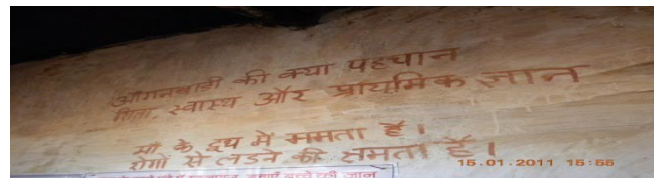 आंगनबाडी की क्या पहचान
शिक्षा, स्वास्थ और प्राथमिक ज्ञान
माँ के दूध में ममता है।
रोगों से लडने की क्षमता है।
15.01.2011 15:55